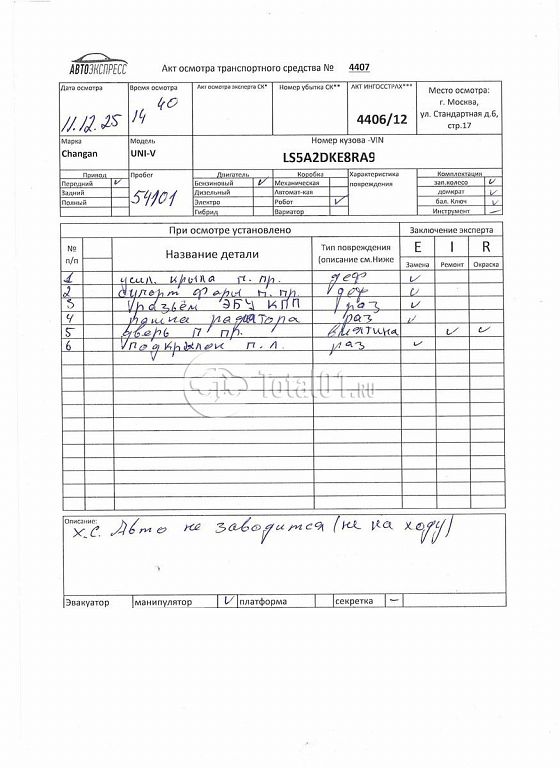 АВТОЭКСПРЕСС
Акт осмотра транспортного средства № 4407
Дата осмотра
11.12.25
Время осмотра
14 40
Акт осмотра эксперта СК*
Номер убытка СК**
АКТ ИНГОССТРАХ***
4406/12
Место осмотра:
г. Москва,
ул. Стандартная д.6,
стр.17
Марка
Changan
Модель
UNI-V
Номер кузова -VIN
LS5A2DKE8RA9
Привод
Передний V
Задний
Полный
Пробег
54101
Двигатель
Бензиновый V
Дизельный
Электро
Гибрид
Коробка
Механическая
Автомат-кая
Робот V
Вариатор
Характеристика
повреждения
Комплектация
зап.колесо V
домкрат V
бал. Ключ V
Инструмент –
При осмотре установлено
Заключение эксперта
№
п/п
Название детали
Тип повреждения
(описание см.Ниже
E I R
Замена Ремонт Окраска
1 усил. крыла п. пр. деф V
2 суппорт фары п. пр. деф V
3 разъём ЭБУ КПП раз V
4 рамка радиатора раз V
5 дверь п. пр. вмятина V V
6 подкрылок п. л. раз V
Total01.RU
Описание:
Х.С. Авто не заводится (не на ходу)
Эвакуатор манипулятор V платформа секретка –